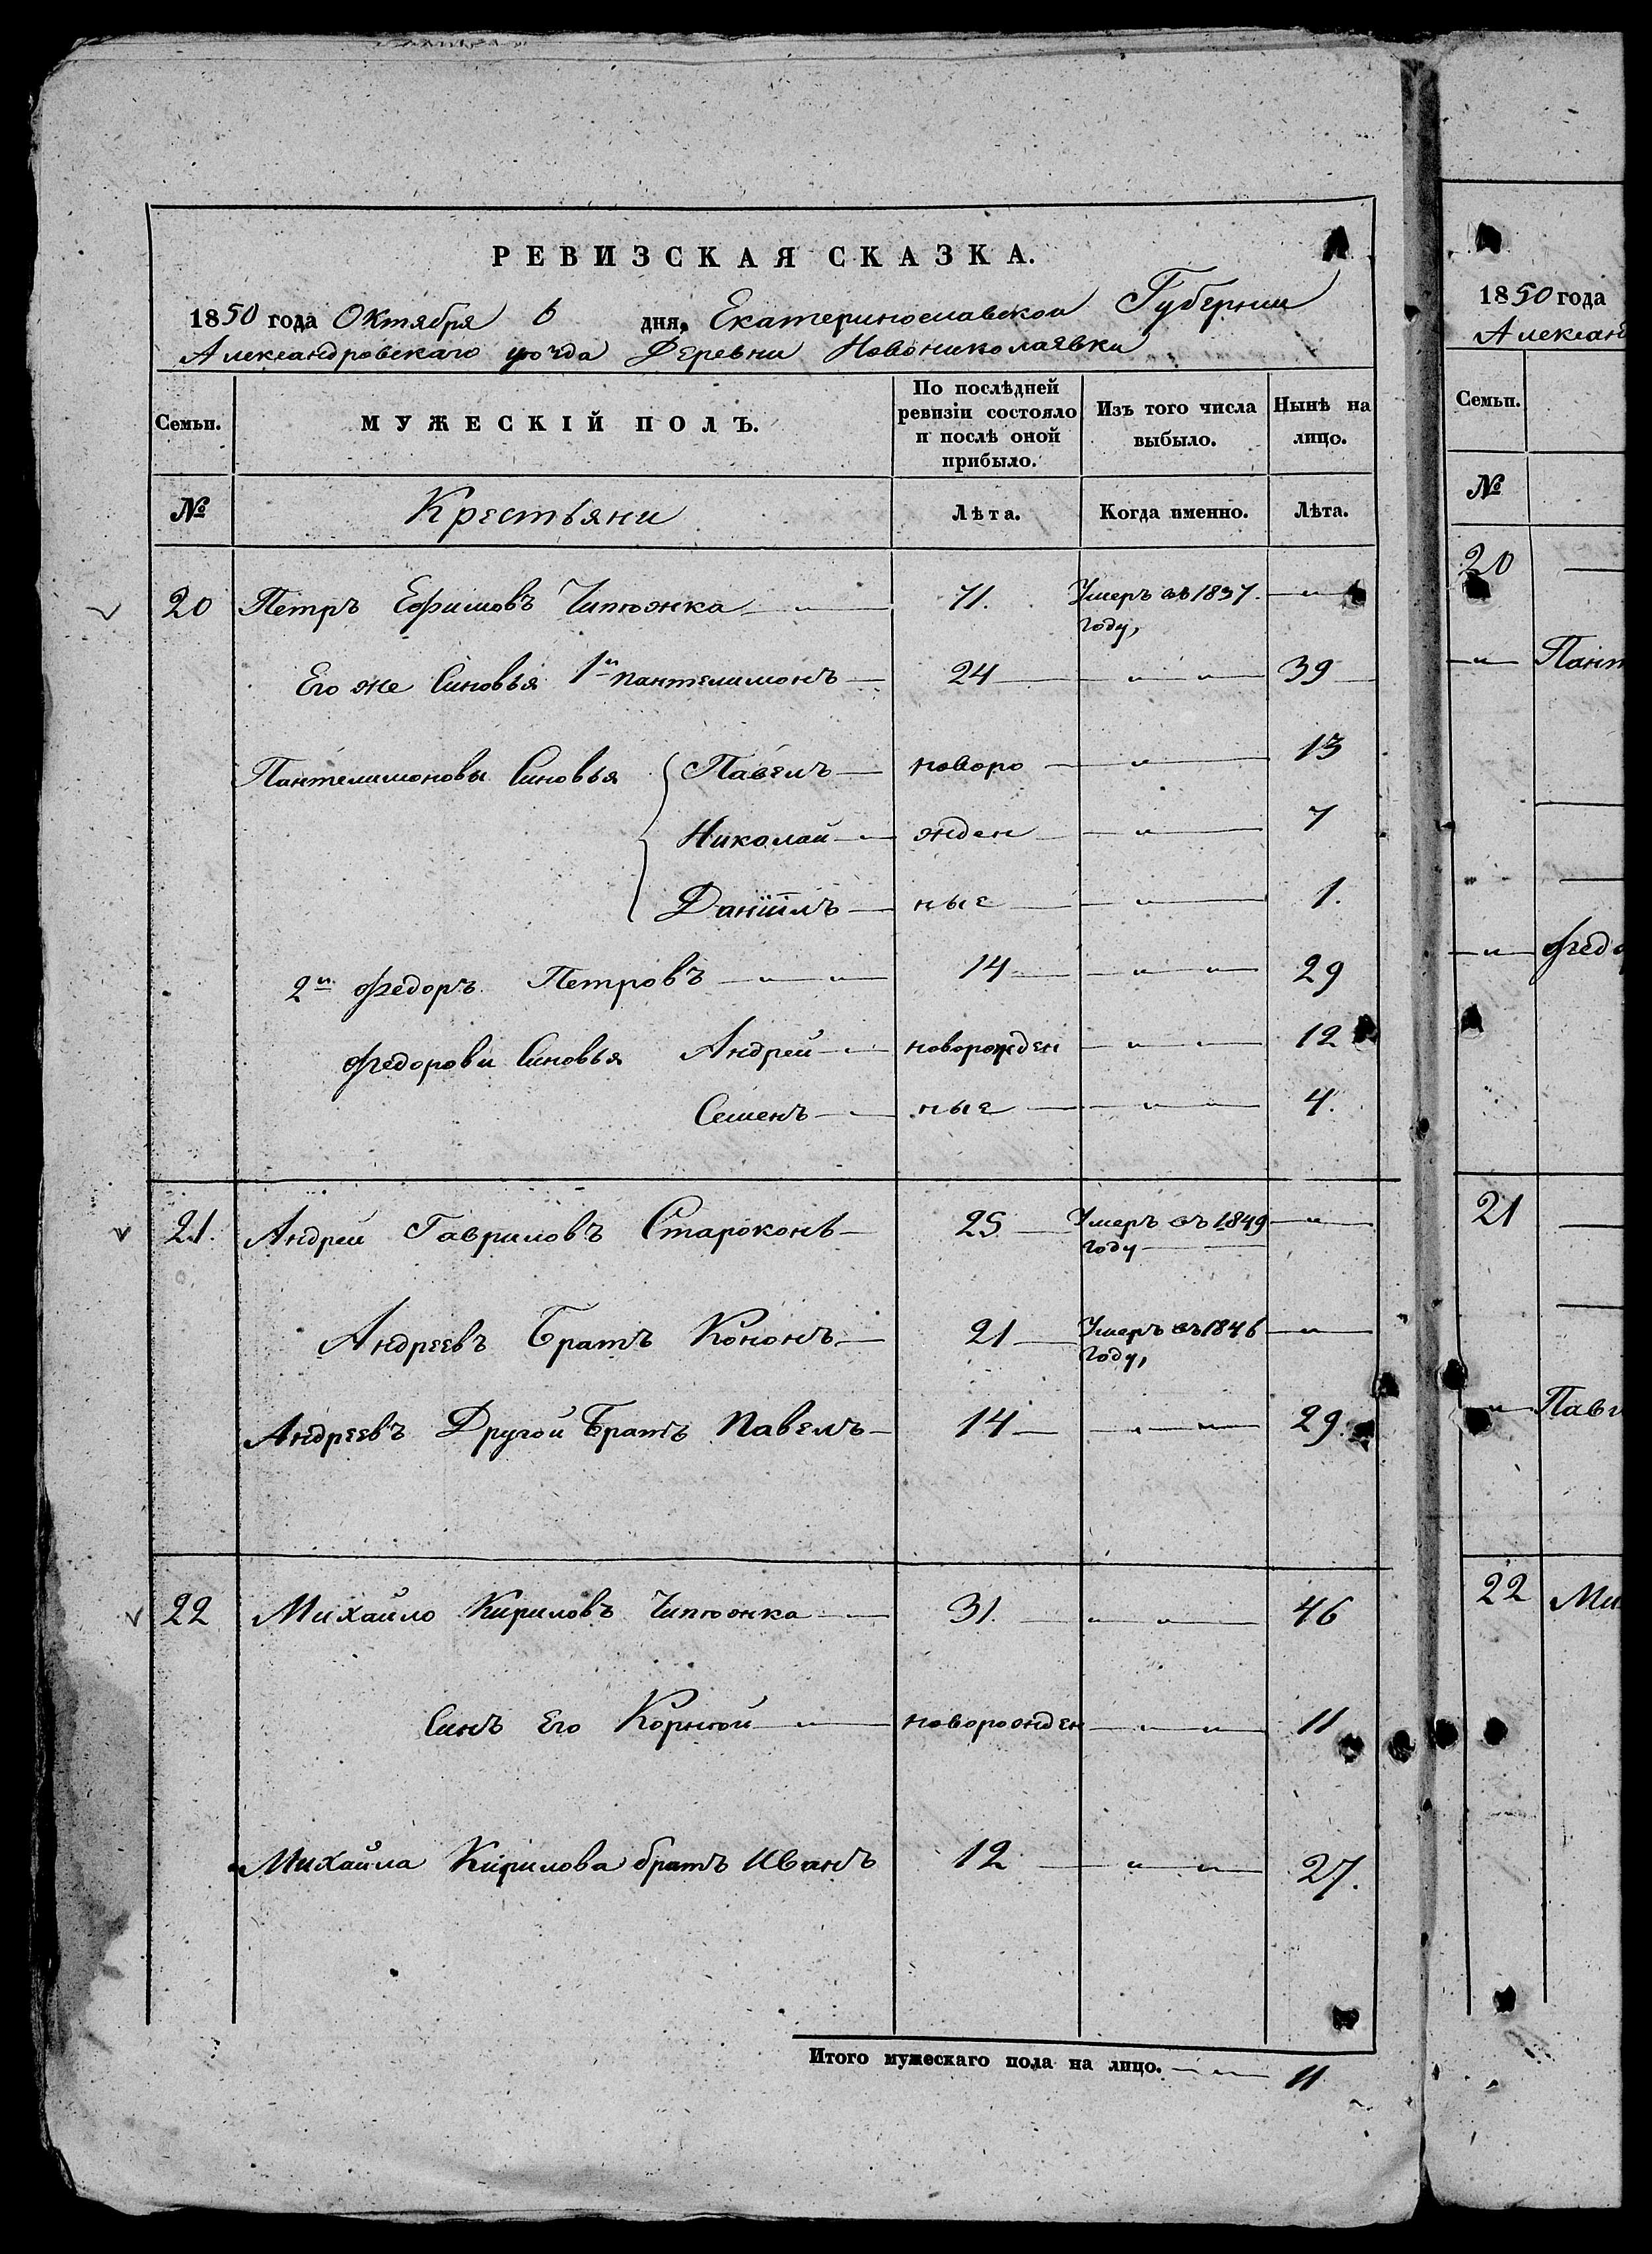 РЕВИЗСКАЯ СКАЗКА.
1850 года Октября 6 дня, Екатеринославской Губернии
Александровскаго уѣзда Деревни Новониколаевки
Семьи. МУЖЕСКІЙ ПОЛЪ. По послѣдней ревизіи состояло и послѣ оной прибыло. Изъ того числа выбыло. Нынѣ на лицо.
№ Крестьяни Лѣта. Когда именно. Лѣта.
20 Петръ Ефимовъ Чипюжка 71. Умеръ въ 1837.
году,
Его же Синовья 1й Пантелимонъ 24 39
Пантелимоновы Синовья Павелъ новоро 13
Николай жден 7
Даніилъ ные 1.
2й Федоръ Петровъ 14 29
Федорови Синовья Андрей новорожден 12
Семенъ ные 4.
21. Андрей Гавриловъ Староконь 25 Умеръ въ 1849
году
Андреевъ Братъ Кононъ 21 Умеръ въ 1846
году,
Андреевъ Другой Братъ Павелъ 14 29.
22 Михайло Кириловъ Чипюжка 31. 46
Синъ Его Корнюй новорожден 11
Михайла Кирилова братъ Иванъ 12 27.
Итого мужескаго пола на лицо. 11
1850 года
Александ
Семьи.
№
20
Пант
Федо
21
Паве
22 Ми